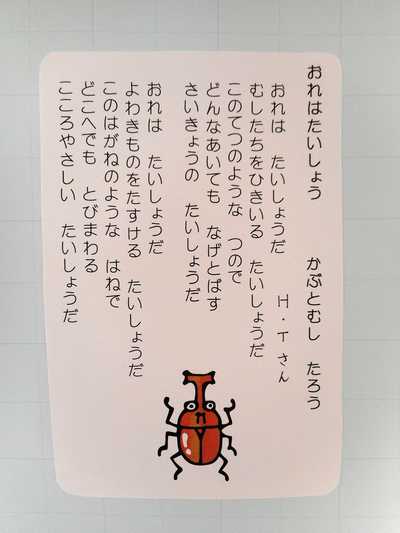 おれはたいしょう　　かぶとむし　たろう
H・Tさん
おれは　たいしょうだ
むしたちをひきいる　たいしょうだ
このてつのような　つので
どんなあいても　なげとばす
さいきょうの　たいしょうだ
おれは　たいしょうだ
よわきものをたすける　たいしょうだ
このはがねのような　はねで
どこへでも　とびまわる
こころやさしい　たいしょうだ